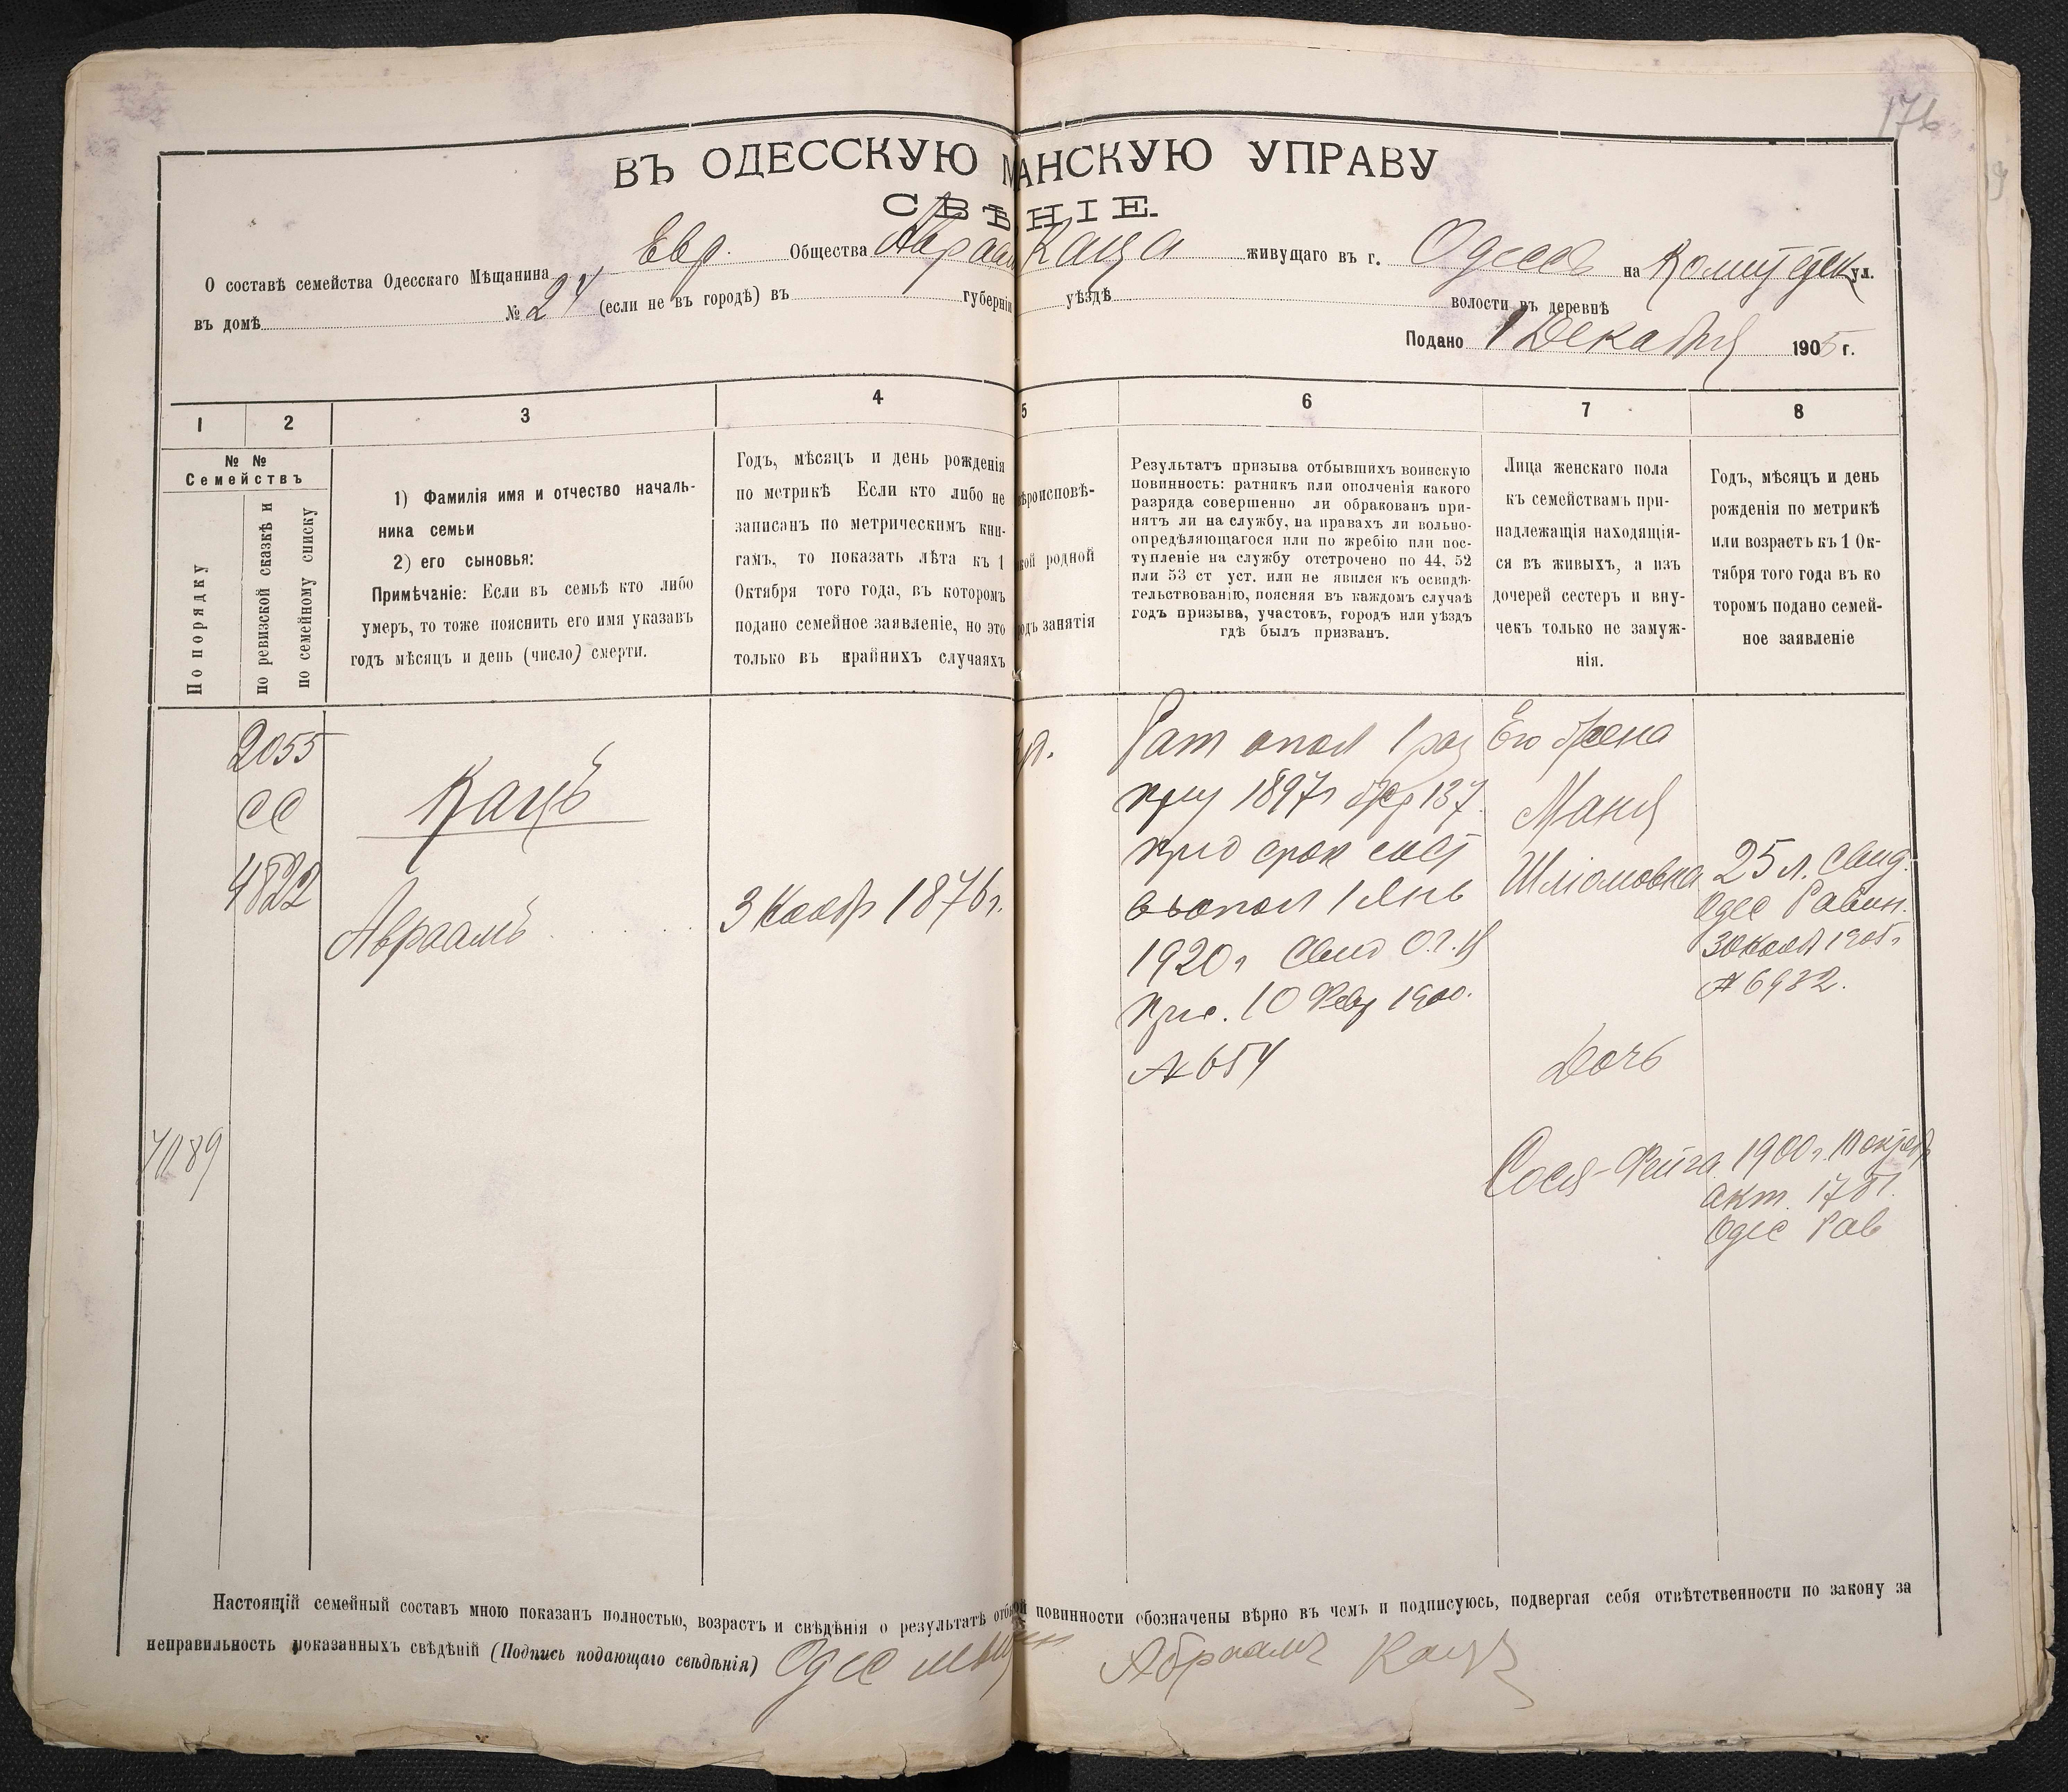 176
ВЪ ОДЕССКУЮ МАНСКУЮ УПРАВУ
СВѢНІЕ.
О составѣ семейства Одесскаго Мѣщанина Евр. Общества Авраам Каца живущаго въ г. Одессѣ на ул.
въ домѣ № 24 (если не въ городѣ) въ губерніи уѣздѣ волости въ деревнѣ
Подано 1 Декабря 1905 г.
1 2 3 4 5 6 7 8
№ №
Семействъ
По порядку
по ревизской сказкѣ и
по семейному списку
1) Фамилія имя и отчество началь-
ника семьи
2) его сыновья:
Примѣчаніе: Если въ семьѣ кто либо
умеръ, то тоже пояснить его имя указавъ
годъ мѣсяцъ и день (число) смерти.
Годъ, мѣсяцъ и день рожденія
по метрикѣ Если кто либо не
записанъ по метрическимъ кни-
гамъ, то показать лѣта къ 1
Октября того года, въ которомъ
подано семейное заявленіе, но это
только въ крайнихъ случаяхъ
ѣроисповѣ-
кой родной
одъ занятія
Результатъ призыва отбывшихъ воинскую
повинность: ратникъ или ополченія какого
разряда совершенно ли обракованъ при-
нятъ ли на службу, на правахъ ли вольно-
опредѣляющагося или по жребію или пос-
тупленіе на службу отстрочено по 44, 52
или 53 ст уст. или не явился къ освидѣ-
тельствованію, поясняя въ каждомъ случаѣ
годъ призыва, участокъ, городъ или уѣздъ
гдѣ былъ призванъ.
Лица женскаго пола
къ семействамъ при-
надлежащія находящія-
ся въ живыхъ, а изъ
дочерей сестеръ и вну-
чекъ только не замуж-
нія.
Годъ, мѣсяцъ и день
рожденія по метрикѣ
или возрастъ къ 1 Ок-
тября того года въ ко
торомъ подано семей-
ное заявленіе
2055
сс
4822
Кацъ
Авраамъ
3 Нояб 1876 г.
Рат опол 1 раз
приз 1897 г жер 137
срок
опол 1 Янв
1920 г Свид О. г. п
прис. 10 Февр 1900.
№ 654
Его жена
Маня
Шліомовна
25 л. Свид.
Одес Равин.
30 Нояб 1905 г
№ 6982.
Дочь
Сося-Фейга
1900 г.
акт. 1781.
Одес Рав
Настоящій семейный составъ мною показанъ полностью, возрастъ и свѣдѣнія о результатѣ отб ой повинности обозначены вѣрно въ чемъ и подписуюсь, подвергая себя отвѣтственности по закону за
неправильность показанныхъ свѣдѣній (Подпись подающаго свѣдѣнія) Одес мѣщ Абрамъ Кацъ